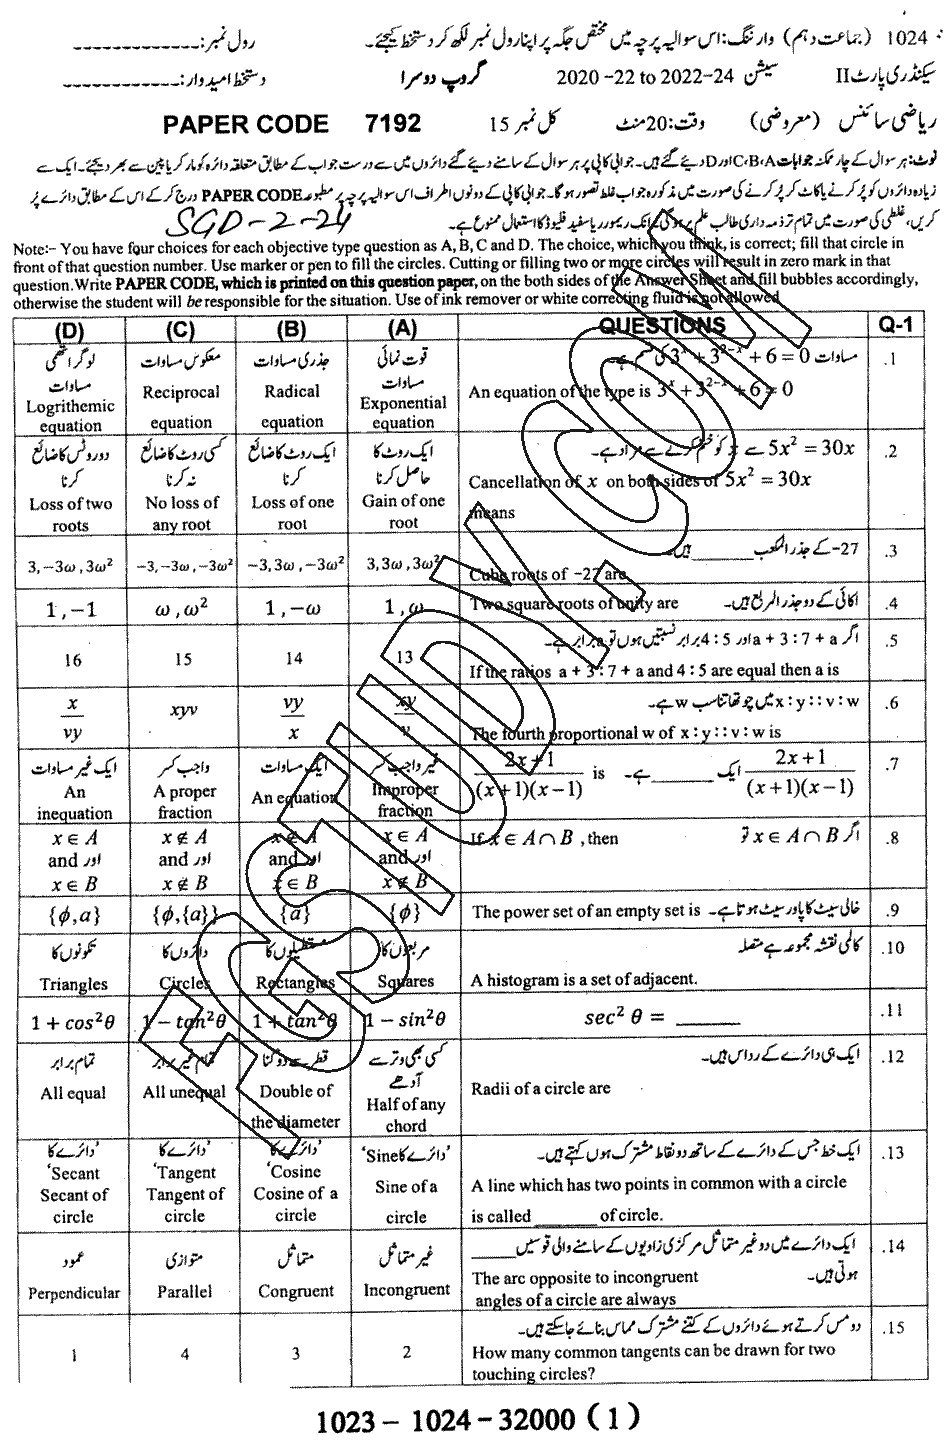 1024 (جماعت دہم) وارننگ: اس سوالیہ پرچہ میں مختص جگہ پر اپنا رول نمبر لکھ کر دستخط کیجئے۔ رول نمبر: ------------
سیکنڈری پارٹ II سیشن 2020-22 to 2022-24 گروپ دوسرا دستخط امیدوار: ------------
ریاضی سائنس (معروضی) وقت: 20 منٹ کل نمبر 15 PAPER CODE 7192
نوٹ: ہر سوال کے چار ممکنہ جوابات A، B، C اور D دیئے گئے ہیں۔ جوابی کاپی پر ہر سوال کے سامنے دیئے گئے دائروں میں سے درست جواب کے مطابق متعلقہ دائرہ کو مارکر یا پین سے بھر دیجئے۔ ایک سے
زیادہ دائروں کو پُر کرنے یا کاٹ کر پُر کرنے کی صورت میں مذکورہ جواب غلط تصور ہوگا۔ جوابی کاپی کے دونوں اطراف اس سوالیہ پرچہ پر مطبوعہ PAPER CODE درج کر کے اس کے مطابق دائرے پُر
کریں، غلطی کی صورت میں تمام تر ذمہ داری طالب علم پر ہوگی۔ انک ریموور یا سفید فلیوڈ کا استعمال ممنوع ہے۔ SGD-2-24
Note:- You have four choices for each objective type question as A, B, C and D. The choice, which you think, is correct; fill that circle in
front of that question number. Use marker or pen to fill the circles. Cutting or filling two or more circles will result in zero mark in that
question. Write PAPER CODE, which is printed on this question paper, on the both sides of the Answer Sheet and fill bubbles accordingly,
otherwise the student will be responsible for the situation. Use of ink remover or white correcting fluid is not allowed
(D) (C) (B) (A) QUESTIONS Q-1
لوگرا تھمی مساوات معکوس مساوات جذری مساوات قوت نمائی مساوات مساوات 3ˣ + 3²⁻ˣ + 6 = 0 کی قسم ہے۔ .1
Logrithemic equation Reciprocal equation Radical equation Exponential equation An equation of the type is 3ˣ + 3²⁻ˣ + 6 = 0
دو روٹس کا ضائع کرنا کسی روٹ کا ضائع نہ کرنا ایک روٹ کا ضائع کرنا ایک روٹ کا حاصل کرنا 5x² = 30x سے x کو ختم کرنے سے مراد ہے۔ .2
Loss of two roots No loss of any root Loss of one root Gain of one root Cancellation of x on both sides of 5x² = 30x
means
-27 کے جذر المکعب ______ ہیں۔ .3
3, −3ω, 3ω² −3, −3ω, −3ω² −3, 3ω, −3ω² 3, 3ω, 3ω² Cube roots of −27 are
1, −1 ω, ω² 1, −ω 1, ω Two square roots of unity are اکائی کے دو جذر المربع ہیں۔ .4
اگر a + 3 : 7 + a اور 4 : 5 برابر نسبتیں ہوں تو a برابر ہے۔ .5
16 15 14 13 If the ratios a + 3 : 7 + a and 4 : 5 are equal then a is
x : y : : v : w میں چوتھا تناسب w ہے۔ .6
x/vy xyv vy/x xy/v The fourth proportional w of x : y : : v : w is
ایک غیر مساوات واجب کسر ایک مساوات غیر واجب کسر (2x+1)/((x+1)(x−1)) is ایک ______ ہے۔ (2x+1)/((x+1)(x−1)) .7
An inequation A proper fraction An equation Improper fraction
x ∈ A and اور x ∈ B x ∉ A and اور x ∉ B x ∉ A and اور x ∈ B x ∈ A and اور x ∉ B If x ∈ A ∩ B , then اگر x ∈ A ∩ B تو .8
{ϕ, a} {ϕ, {a}} {a} {ϕ} The power set of an empty set is خالی سیٹ کا پاور سیٹ ہوتا ہے۔ .9
تکونوں کا دائروں کا مستطیلوں کا مربعوں کا کالمی نقشہ مجموعہ ہے متصلہ .10
Triangles Circles Rectangles Squares A histogram is a set of adjacent.
1 + cos²θ 1 − tan²θ 1 + tan²θ 1 − sin²θ sec² θ = ______ .11
تمام برابر تمام غیر برابر قطر سے دوگنا کسی بھی وتر سے آدھے ایک ہی دائرے کے رداس ہیں۔ .12
All equal All unequal Double of the diameter Half of any chord Radii of a circle are
دائرے کا 'Secant دائرے کا 'Tangent دائرے کا 'Cosine دائرے کا Sine' ایک خط جس کے دائرے کے ساتھ دو نقاط مشترک ہوں کہتے ہیں۔ .13
Secant of circle Tangent of circle Cosine of a circle Sine of a circle A line which has two points in common with a circle
is called ______ of circle.
عمود متوازی متماثل غیر متماثل ایک دائرے میں دو غیر متماثل مرکزی زاویوں کے سامنے والی قوسیں ______ ہوتی ہیں۔ .14
Perpendicular Parallel Congruent Incongruent The arc opposite to incongruent
angles of a circle are always
دو مس کرتے ہوئے دائروں کے کتنے مشترک مماس بنائے جا سکتے ہیں۔ .15
1 4 3 2 How many common tangents can be drawn for two
touching circles?
1023 – 1024 – 32000 ( 1 )